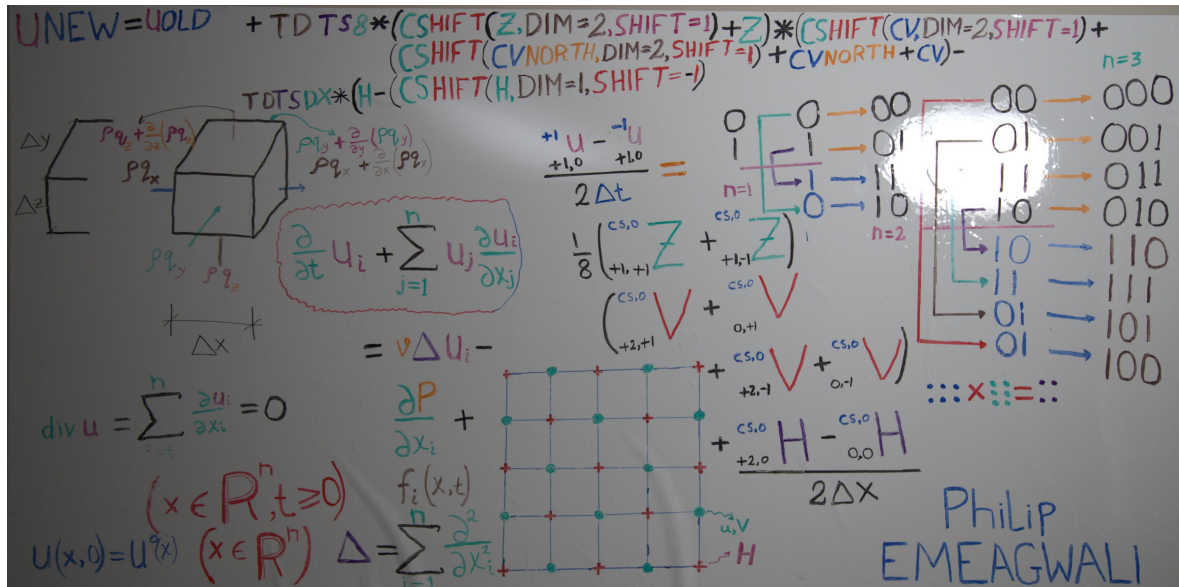 UNEW=UOLD +TDTS8*(CSHIFT(Z,DIM=2,SHIFT=1)+Z)*(CSHIFT(CV,DIM=2,SHIFT=1)+
(CSHIFT(CVNORTH,DIM=2,SHIFT=1)+CVNORTH+CV)-
TDTSDX*(H-(CSHIFT(H,DIM=1,SHIFT=-1)
Δy
Δz
Δx
ρq_z+∂/∂z(ρq_z)
ρq_y+∂/∂y(ρq_y)
ρq_x+∂/∂x(ρq_x)
ρq_x
ρq_y
ρq_z
∂/∂t U_i + n Σ j=1 U_j ∂u_i/∂x_j
= ν Δ U_i −
∂P/∂x_i +
f_i(x,t)
div u = n Σ ∂u_i/∂x_i = 0
(x ∈ R^n, t ≥ 0)
U(x,0)=U^o(x) (x ∈ R^n) Δ = n Σ i=1 ∂²/∂x_i²
+1 U +1,0 − −1 U +1,0
2Δt
=
1/8 (cs,0 Z +1,+1 + cs,0 Z +1,-1)
(cs,0 V +2,+1 + cs,0 V 0,+1
+ cs,0 V +2,-1 + cs,0 V 0,-1)
+ cs,0 H +2,0 − cs,0 H 0,0
2Δx
u,v
H
0
1
n=1
0
1
1
0
00
01
11
10
n=2
00
01
11
10
10
11
01
01
n=3
000
001
011
010
110
111
101
100
× =
PhiLip
EMEAGWALI